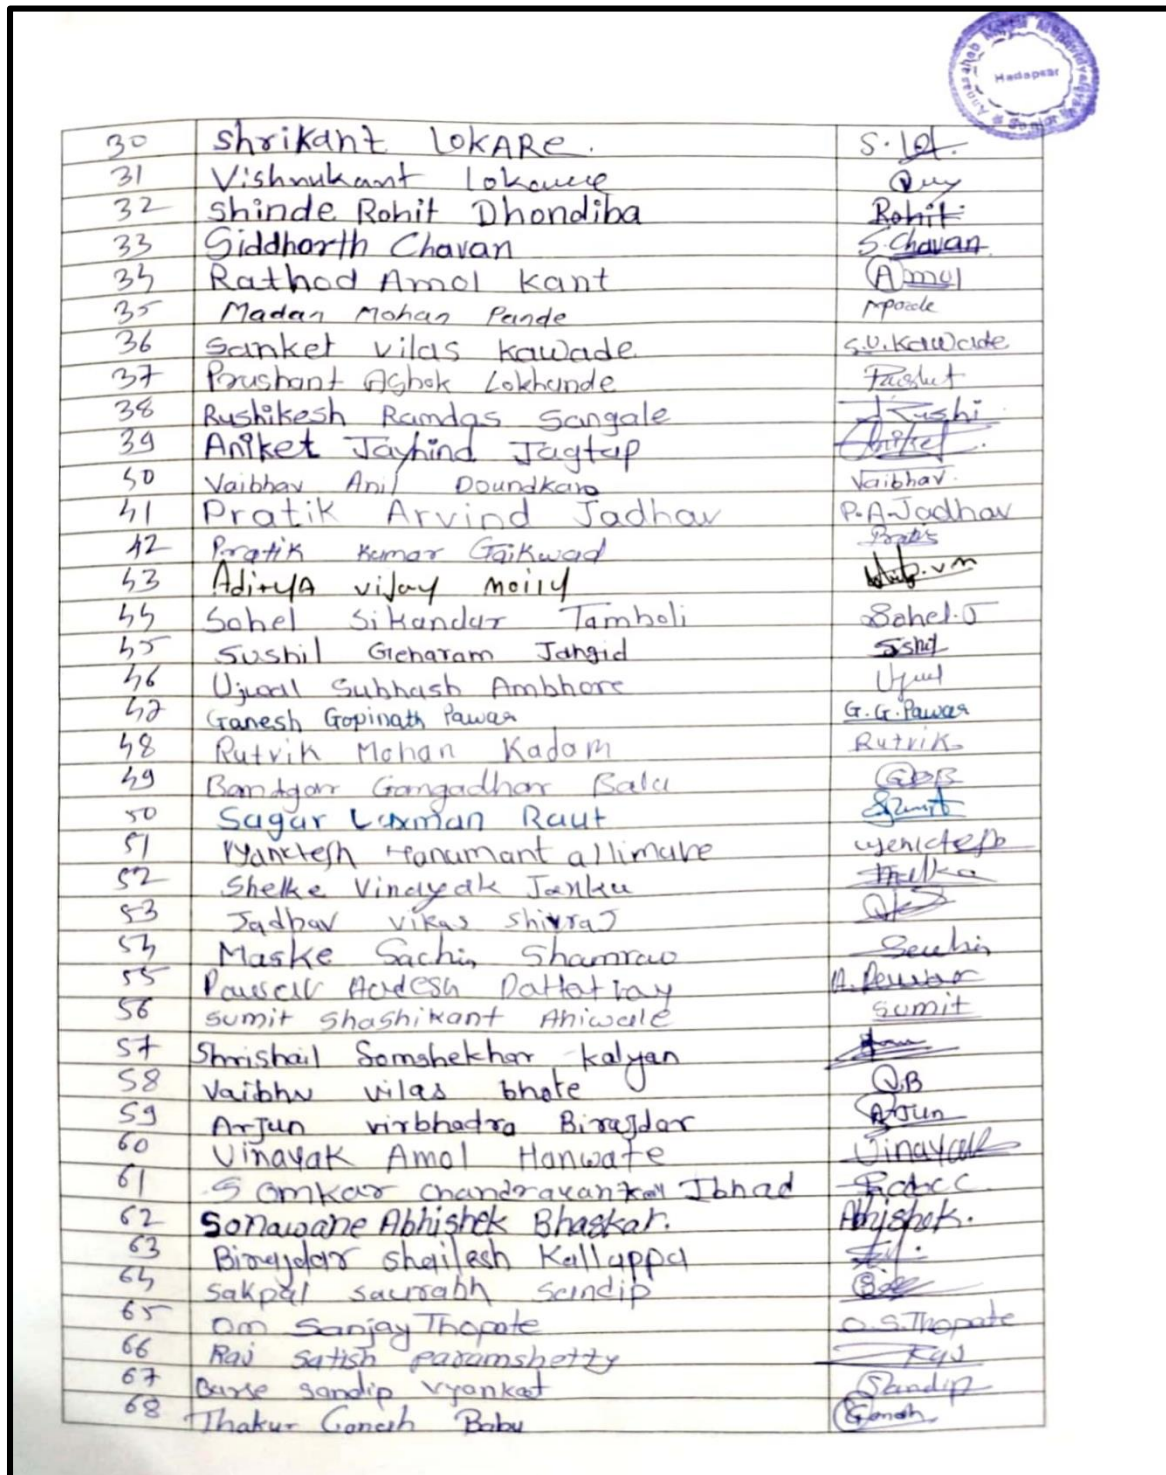 Annasaheb Magar Mahavidyalaya
Hadapsar
30 Shrikant LOKARe. S. Lok.
31 Vishnukant
32 Shinde Rohit Dhondiba Rohit
33 Siddharth Chavan S.Chavan
34 Rathod Amol Kant Amol
35 Madan Mohan Pande
36 Sanket Vilas Kawade S.V.Kawade
37 Prashant Ashok Lokhande
38 Rushikesh Ramdas Sangale Rushi
39 Aniket Jayhind Jagtap Aniket
40 Vaibhav Anil Doundkar Vaibhav.
41 Pratik Arvind Jadhav P.A.Jadhav
42 Pratik Kumar Gaikwad
43 Aditya vijay moily
44 Sohel Sikandar Tamboli Sohel.
45 Sushil Jangid
46 Ujwal Subhash Ambhore
47 Ganesh Gopinath Pawar G.G.Pawar
48 Rutvik Mohan Kadam Rutvik
49 Bandgar Gangadhar Balu
50 Sagar Laxman Raut
51 Hanumant
52 Shelke Vinayak Janku
53 Jadhav vikas Shivraj
54 Maske Sachin Shamrao Sachin
55 Dattatray
56 Sumit Shashikant Ahiwale Sumit
57 Shrishail Somshekhar kalyan
58 vilas bhote
59 Arjun virbhadra Birajdar Arjun
60 Vinayak Amol Hanwate Vinayak
61 Omkar
62 Sonawane Abhishek Bhaskar. Abhishek.
63 Birajdar shailesh Kallappa
64 Sakpal saurabh Sandip
65 Om Sanjay Thopate O.S.Thopate
66 Raj Satish paramshetty Raj
67 sandip vyankat Sandip
68 Thakur Ganesh Babu Ganesh